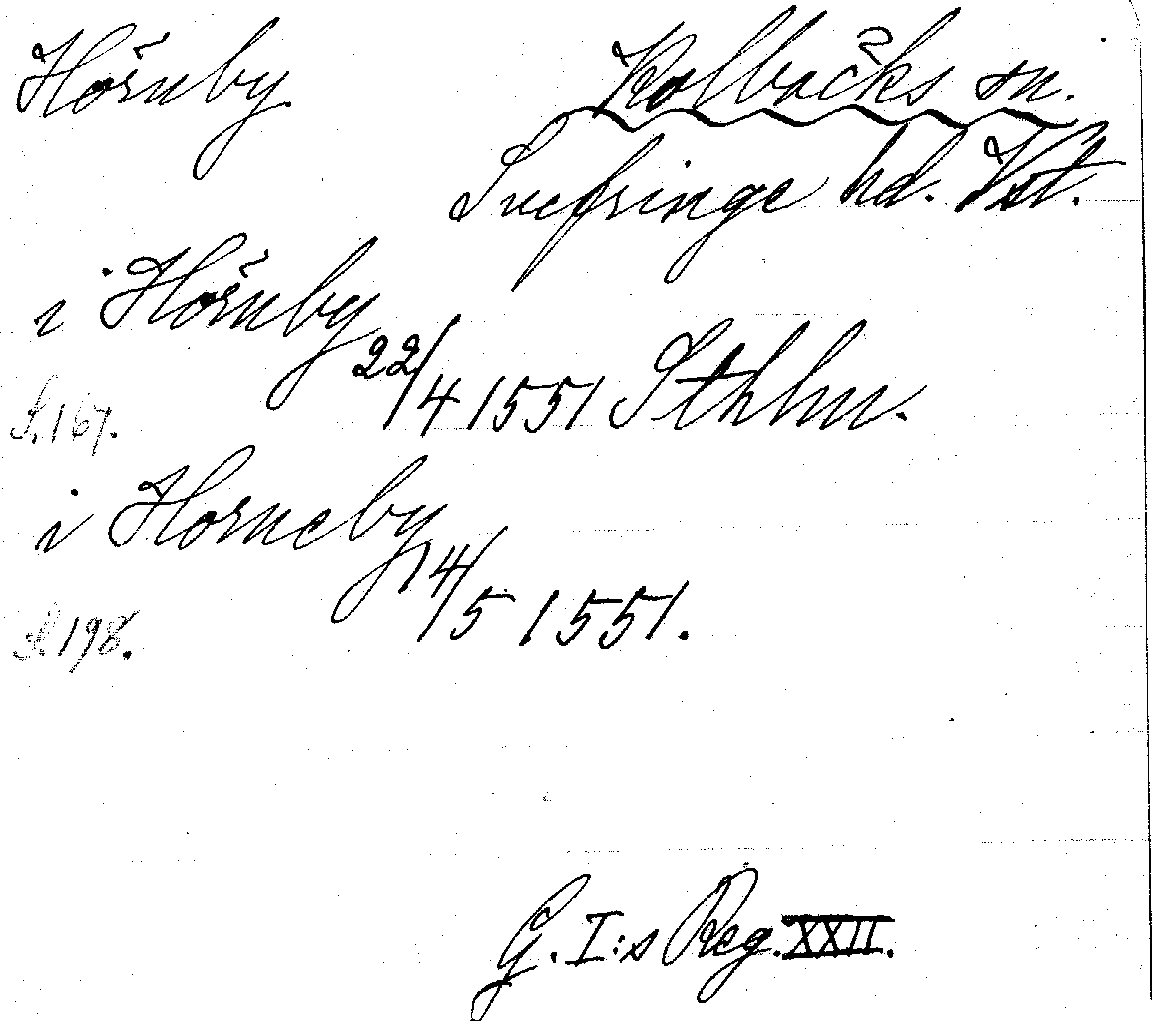 Hörnby
Kolbäcks sn.
Snefringe hd. Vst.
i Hörnby 22/4 1551 Sthlm.
S. 167.
i Horneby 14/5 1551.
S. 198.
G. I:s Reg. XXII.